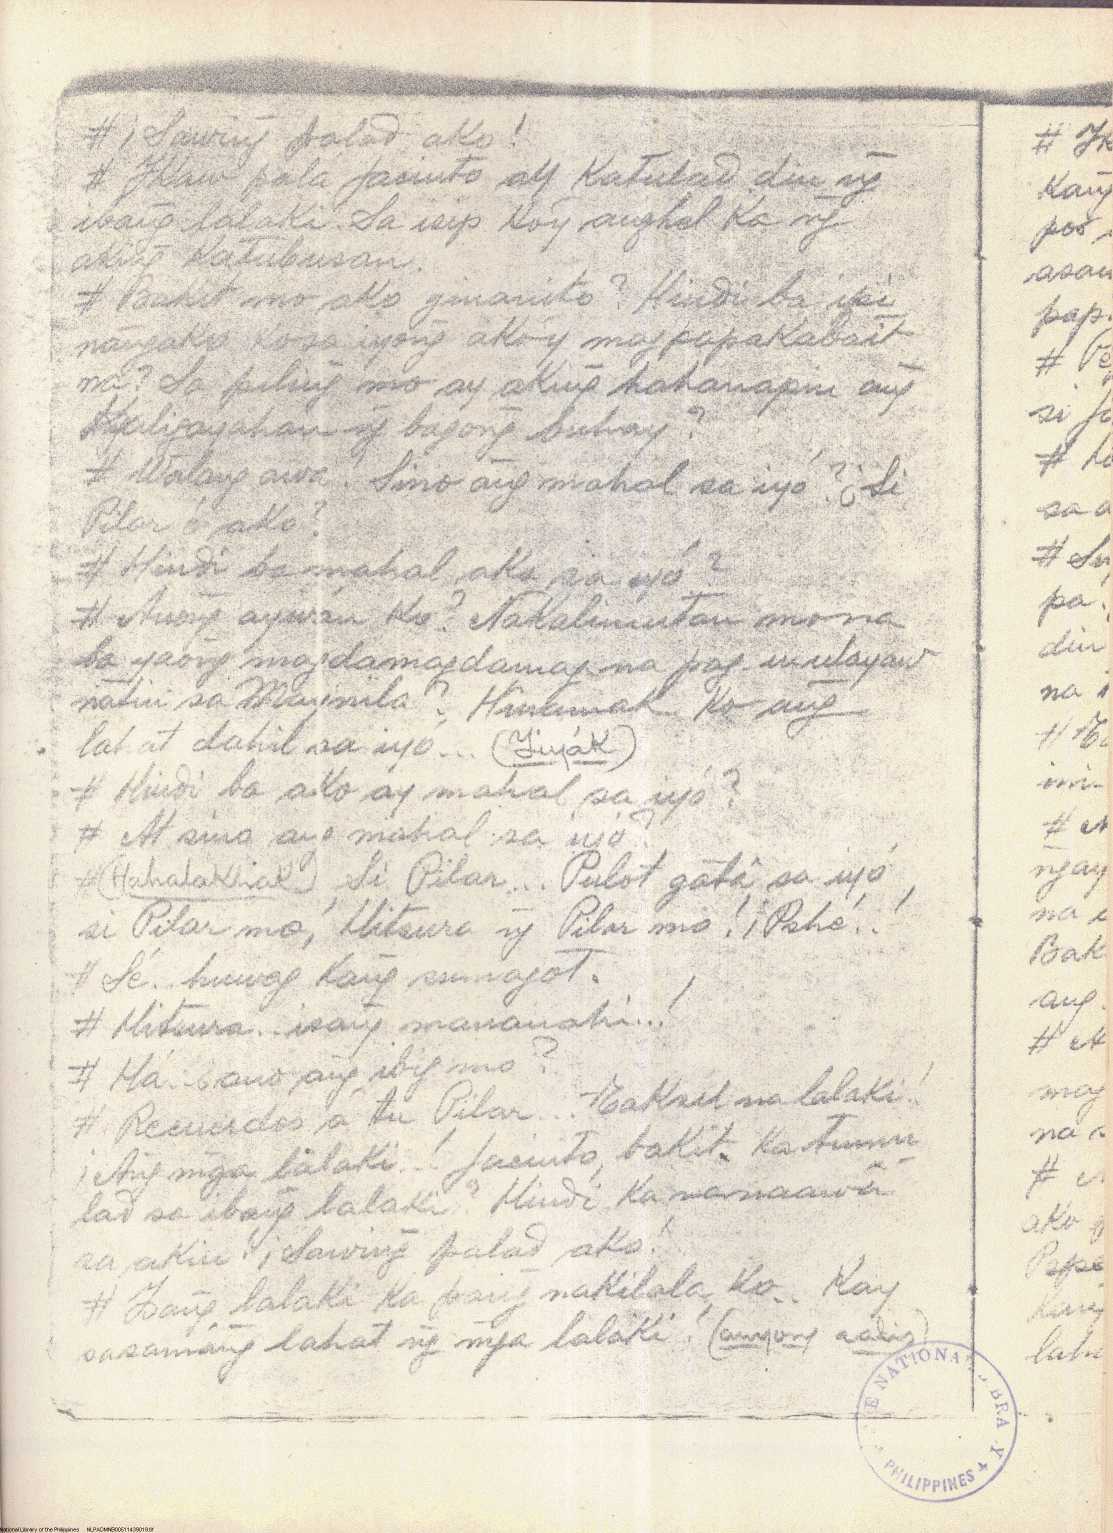 # ¡Sawing̃ palad ako!
# Ikaw pala Jacinto ay katulad din ng̃
ibang̃ lalaki. Sa isip ko'y anghel ka ng̃
aking̃ katubusan.
# Bakit mo ako ginanito? Hindi ba ipi
nang̃ako ko sa iyong̃ ako'y magpapakabait
na? Sa piling̃ mo ay aking̃ hahanapin ang̃
kaligayahan ng̃ bagong̃ buhay?
# Walang awa. Sino ang̃ mahal sa iyó? ¿Si
Pilar ó ako?
# Hindi ba mahal ako sa iyó?
# Anong̃ aywan ko? Nakalimutan mo na
ba yaong̃ magdamagdamag na pag-uulayaw
natin sa Maynila? Hinamak ko ang̃
lahat dahil sa iyó... (Iiyák)
# Hindi ba ako ay mahal sa iyó?
# At sino ang mahal sa iyó?
# (Hahalakhak) Si Pilar... Pulot gatâ sa iyó,
si Pilar mo, Hitsura ng̃ Pilar mo! ¡Pshé..!
# Sé.. huwag kang̃ sumagot.
# Hitsura.. isang̃ mananahi...!
# Há.. ¿ano ang̃ ibig mo?
# Recuerdos á tu Pilar... Taksil na lalaki!
¡Ang̃ mg̃a lalaki..! Jacinto, bakit ka tumu
lad sa ibang̃ lalaki? Hindi ka naaawâ
sa akin? ¡Sawing̃ palad ako!
# Isang̃ lalaki ka pang̃ nakilala ko.. Kay
sasamáng̃ lahat ng̃ mg̃a lalaki! (anyong aalis)
# Ik
kang̃
poo
asa
pap
#
si Ja
#
sa a
#
pa.
din
na i
#
#
ng̃ay
na
Bak
ang
#
mag
na
#
ako
laha
THE NATIONAL LIBRARY
PHILIPPINES
National Library of the Philippines NLPADMNB00511439019.tif